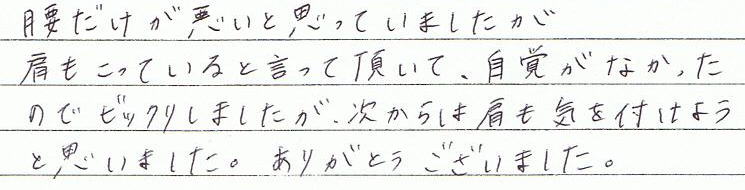 腰だけが悪いと思っていましたが
肩もこっていると言って頂いて、自覚がなかった
のでビックリしましたが、次からは肩も気を付けよう
と思いました。ありがとうございました。